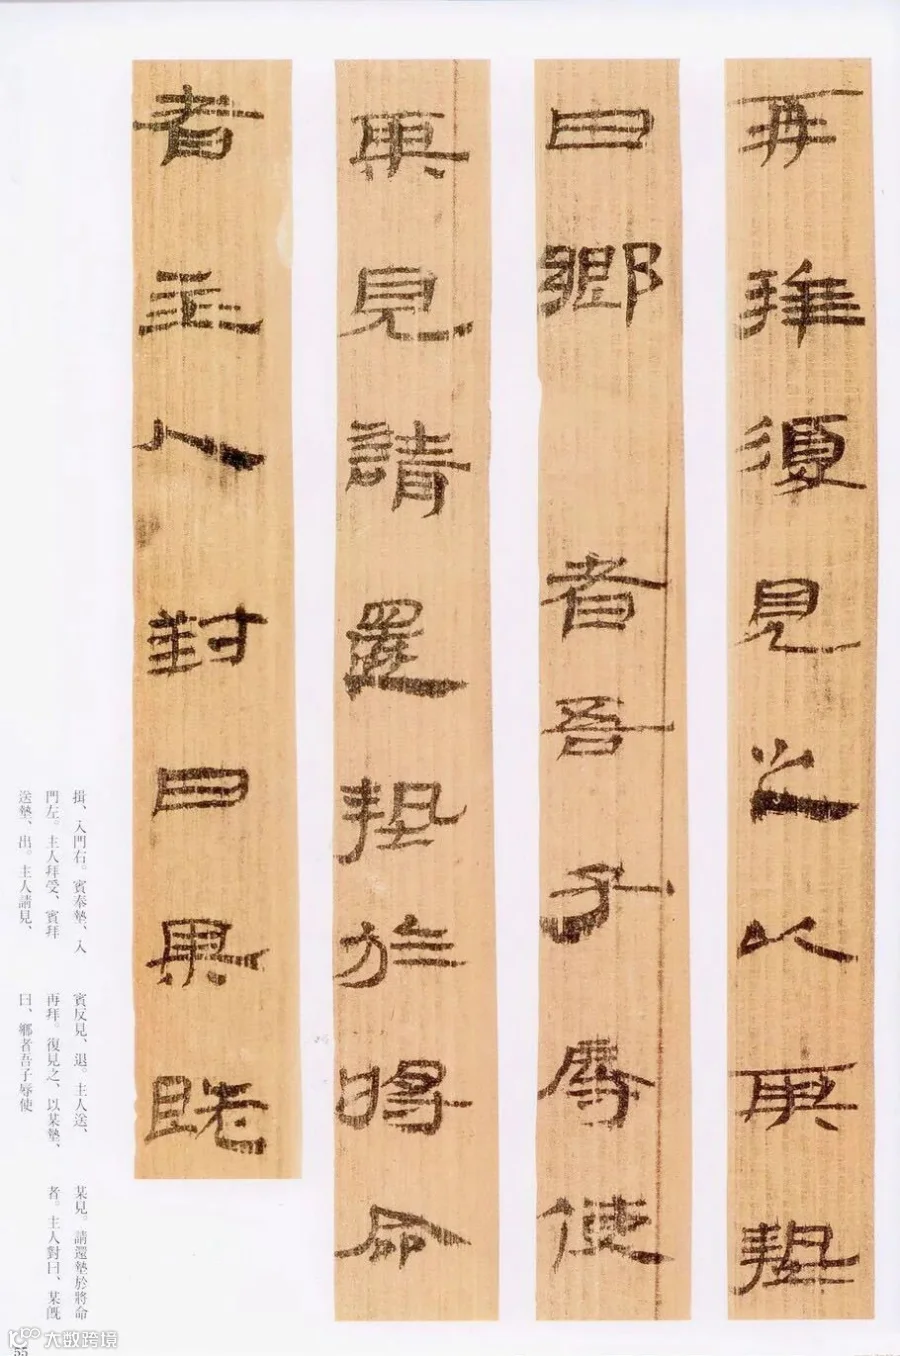 再拜復見之以某摯
曰鄉者吾子辱使
某見請還摯於將命
者主人對曰某既
揖、入門右。賓奉摯、入
門左。主人拜受、賓拜
送摯、出。主人請見、
賓反見、退。主人送、
再拜。復見之、以某摯、
曰、鄉者吾子辱使
某見。請還摯於將命
者。主人對曰、某既
大数跨境
55